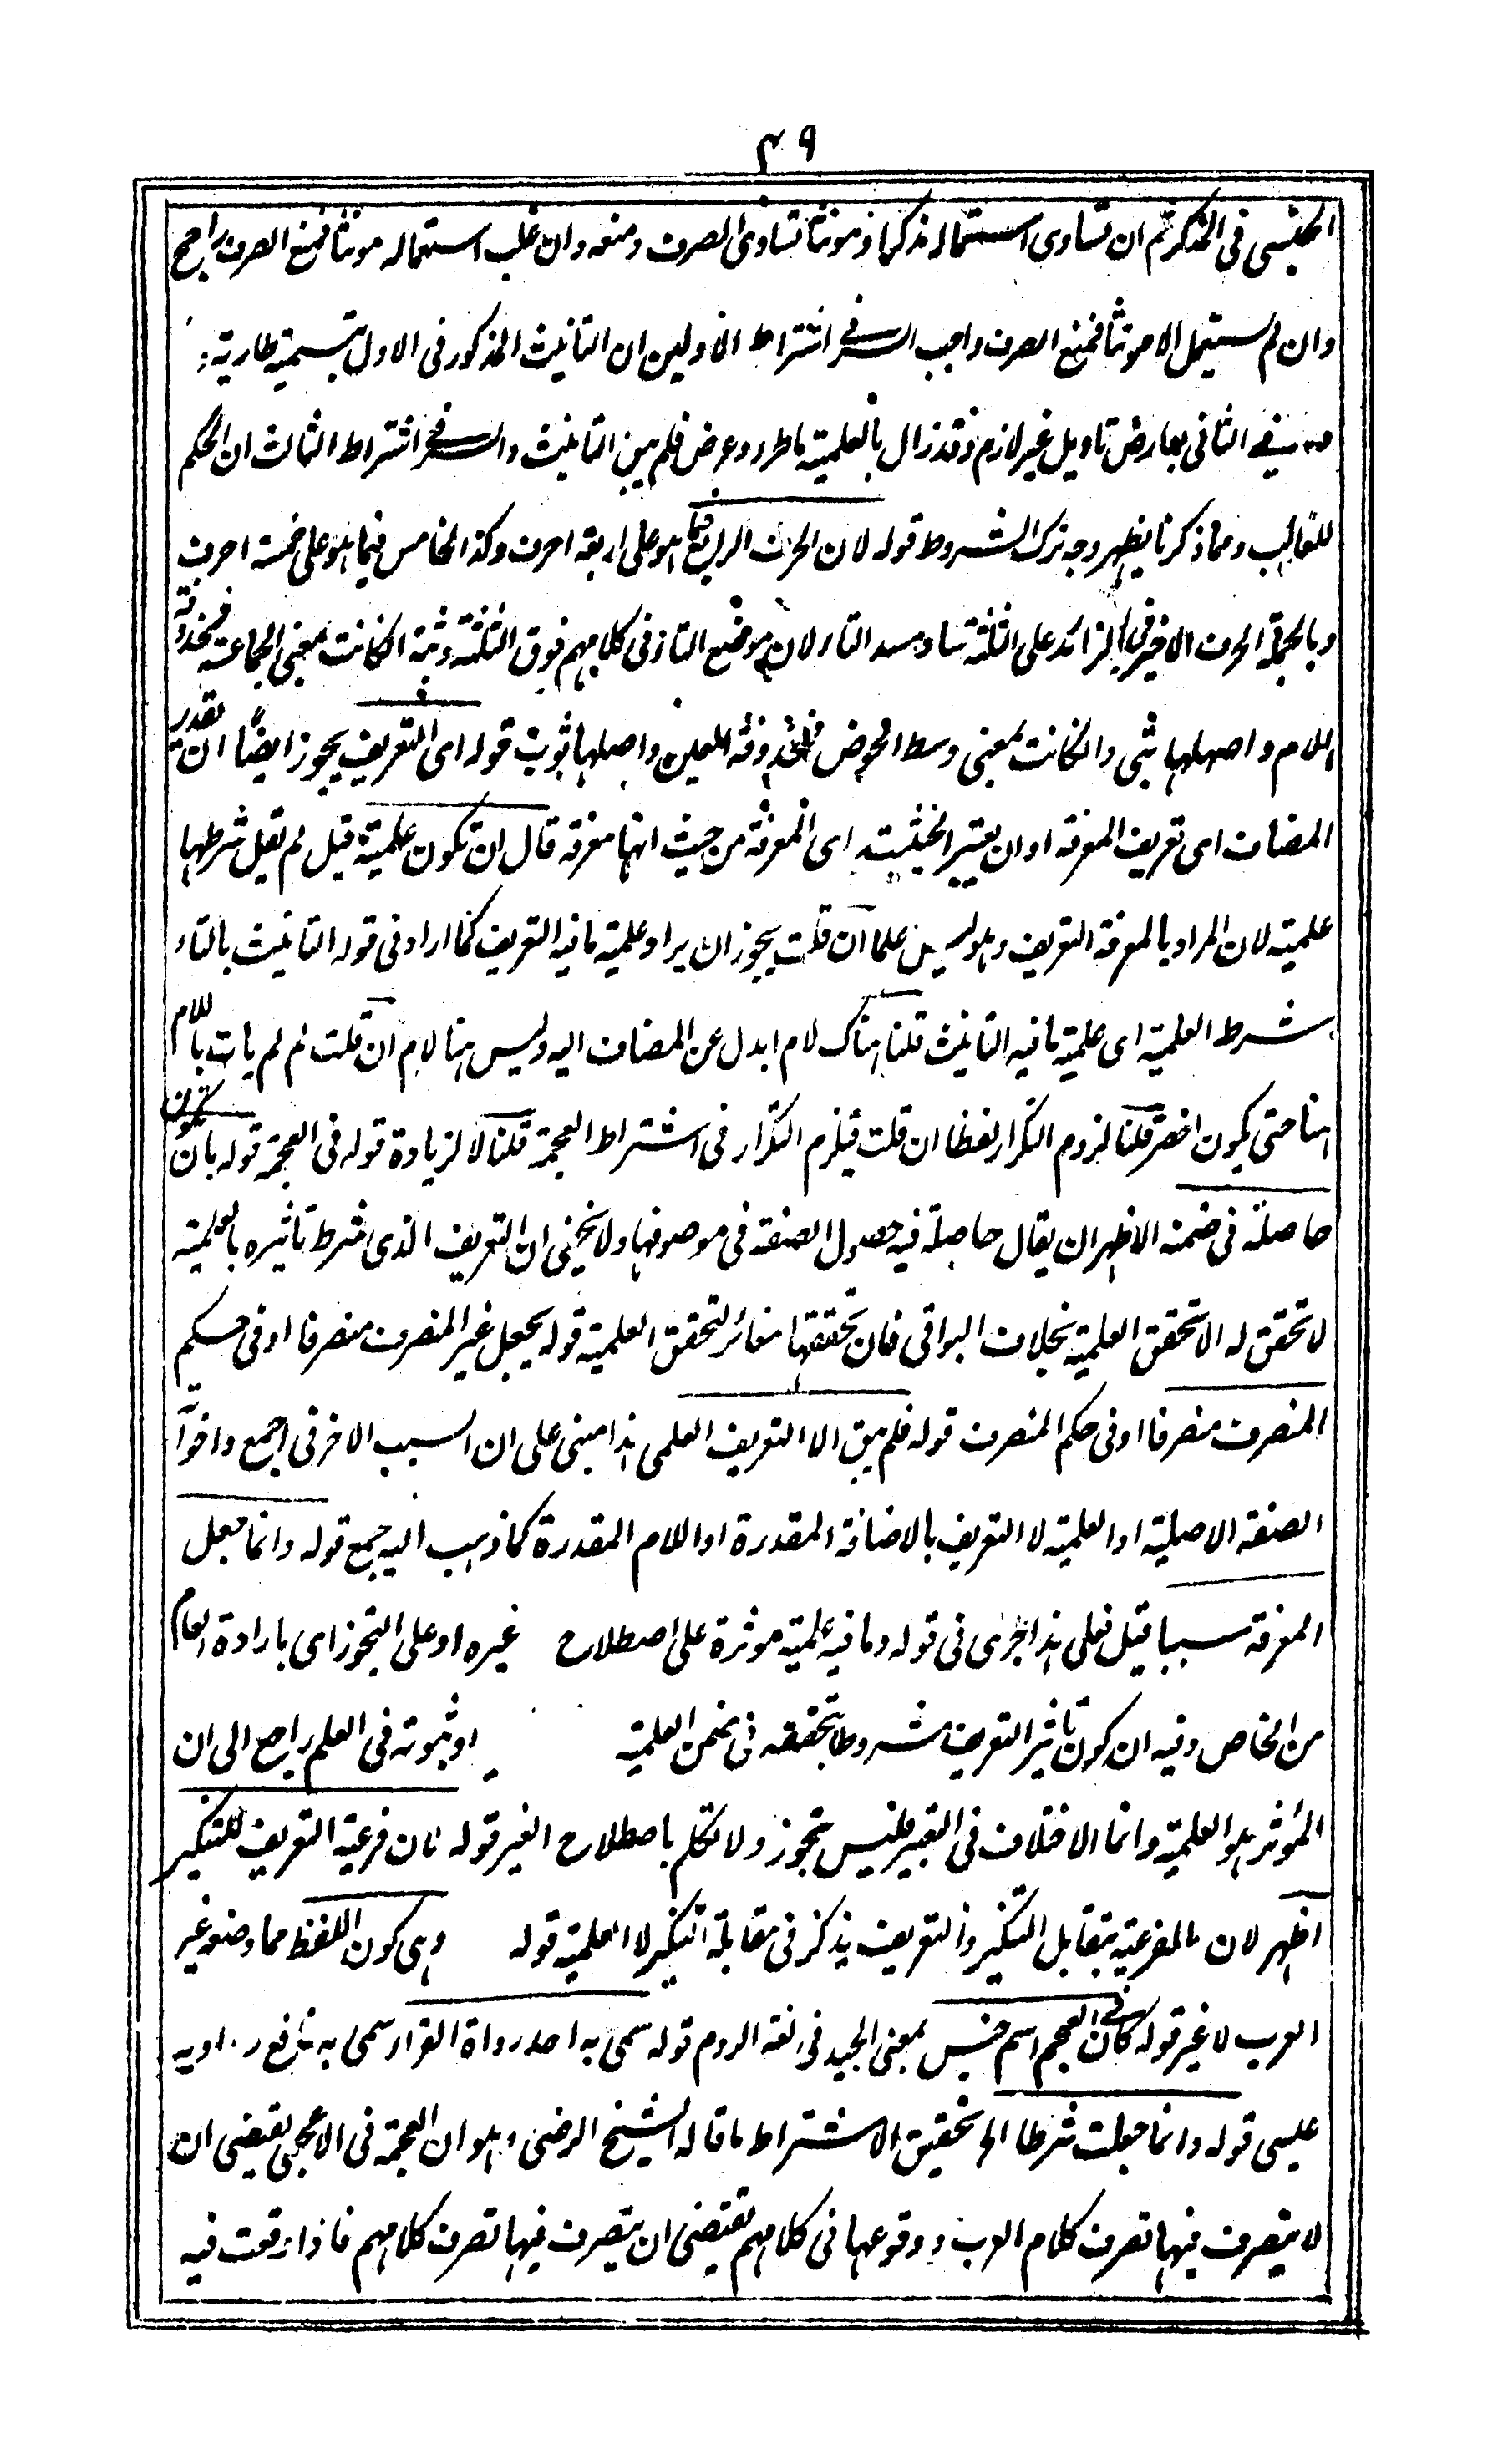 ٤٩
الجنسى فى المذكر ثم ان تساوى استعماله مذكرا ومونثا تساوى الصرف ومنعه وان غلب استعماله مونثا فمنع الصرف راجح
وان لم يستعمل الا مونثا فمنع الصرف واجب السر فى اشتراط الاولين ان التانيث المذكور فى الاول بتسمية طارية
فى الثانى بعارض تاويل غير لازم وقد زال بالعلمية ما طرء وعرض فلم يبق التانيث والسر فى اشتراط الثالث ان الحكم
للغالب ومما ذكرنا يظهر وجه ترك الشروط قوله لان الحرف الرابع فيما هو على اربعة احرف وكذا الخامس فيما هو على خمسة احرف
وبالجملة الحرف الاخير فى الزائد على الثلثة ساد مسد التاء لان موضع التاء فى كلامهم فوق الثلثة وثبة اكانت بمعنى الجماعة فمحذوفة
اللام واصلها ثبى وانكانت بمعنى وسط الحوض فمحذوفة العين واصلها ثوب قوله اى التعريف يجوز ايضًا ان تقدر
المضاف اى تعريف المعرفة او ان يعتبر الحيثية اى المعرفة من حيث انها معرفة قال ان تكون علمية قيل لم يقل شرطها
علمية لان المراد بالمعرفة التعريف وهو ليس علما ان قلت يجوز ان يراد علمية ما فيه التعريف كما اراد فى قوله التانيث بالتاء
شرط العلمية اى علمية ما فيه التانيث قلنا هناك لام ابدل عن المضاف اليه وليس هنا لام ان قلت لم لم يات باللام
هنا حتى يكون اخصر قلنا لزوم التكرار لفظا ان قلت فيلزم التكرار فى اشتراط العجمة قلنا لا لزيادة قوله فى العجمة قوله بان تكون
حاصلة فى ضمنه الاظهر ان يقال حاصلة فيه حصول الصفة فى موصوفها ولا يخفى ان التعريف الذى شرط تاثيره بالعلمية
لا تحقق له الا تحقق العلمية بخلاف البواقى فان تحققها مغائر لتحقق العلمية قوله يجعل غير المنصرف منصرفا او فى حكم
المنصرف منصرفا او فى حكم المنصرف قوله فلم يبق الا التعريف العلمى هذا مبنى على ان السبب الاخر فى اجمع واخواته
الصفة الاصلية او العلمية لا التعريف بالاضافة المقدرة او اللام المقدرة كما ذهب اليه جمع قوله وانما جعل
المعرفة سببا قيل فعلى هذا جرى فى قوله وما فيه علمية موثرة على اصطلاح غيره او على التجوز اى بارادة العام
من الخاص وفيه ان كون تاثير التعريف مشروطا بتحققه فى ضمن العلمية او ثبوته فى العلم راجع الى ان
المؤثر هو العلمية وانما الاختلاف فى التعبير فليس تجوز ولا تكلم باصطلاح الغير قوله لان فرعية التعريف للتنكير
اظهر لان المفرعية بتقابل التنكير والتعريف يذكر فى مقابلة التنكير لا العلمية قوله وهى كون اللفظ مما وضعه غير
العرب لا غير قوله كان فى العجم اسم جنس بمعنى الجيد فى لغة الروم قوله سمى به احد رواة القراء سمى به نافع راويه
عيسى قوله وانما جعلت شرطا الخ تحقيق الاشتراط ما قاله الشيخ الرضى وهو ان العجمة فى الاعجمى يقتضى ان
لا يتصرف فيها تصرف كلام العرب ووقوعها فى كلامهم يقتضى ان يتصرف فيها تصرف كلامهم فاذا وقعت فيه